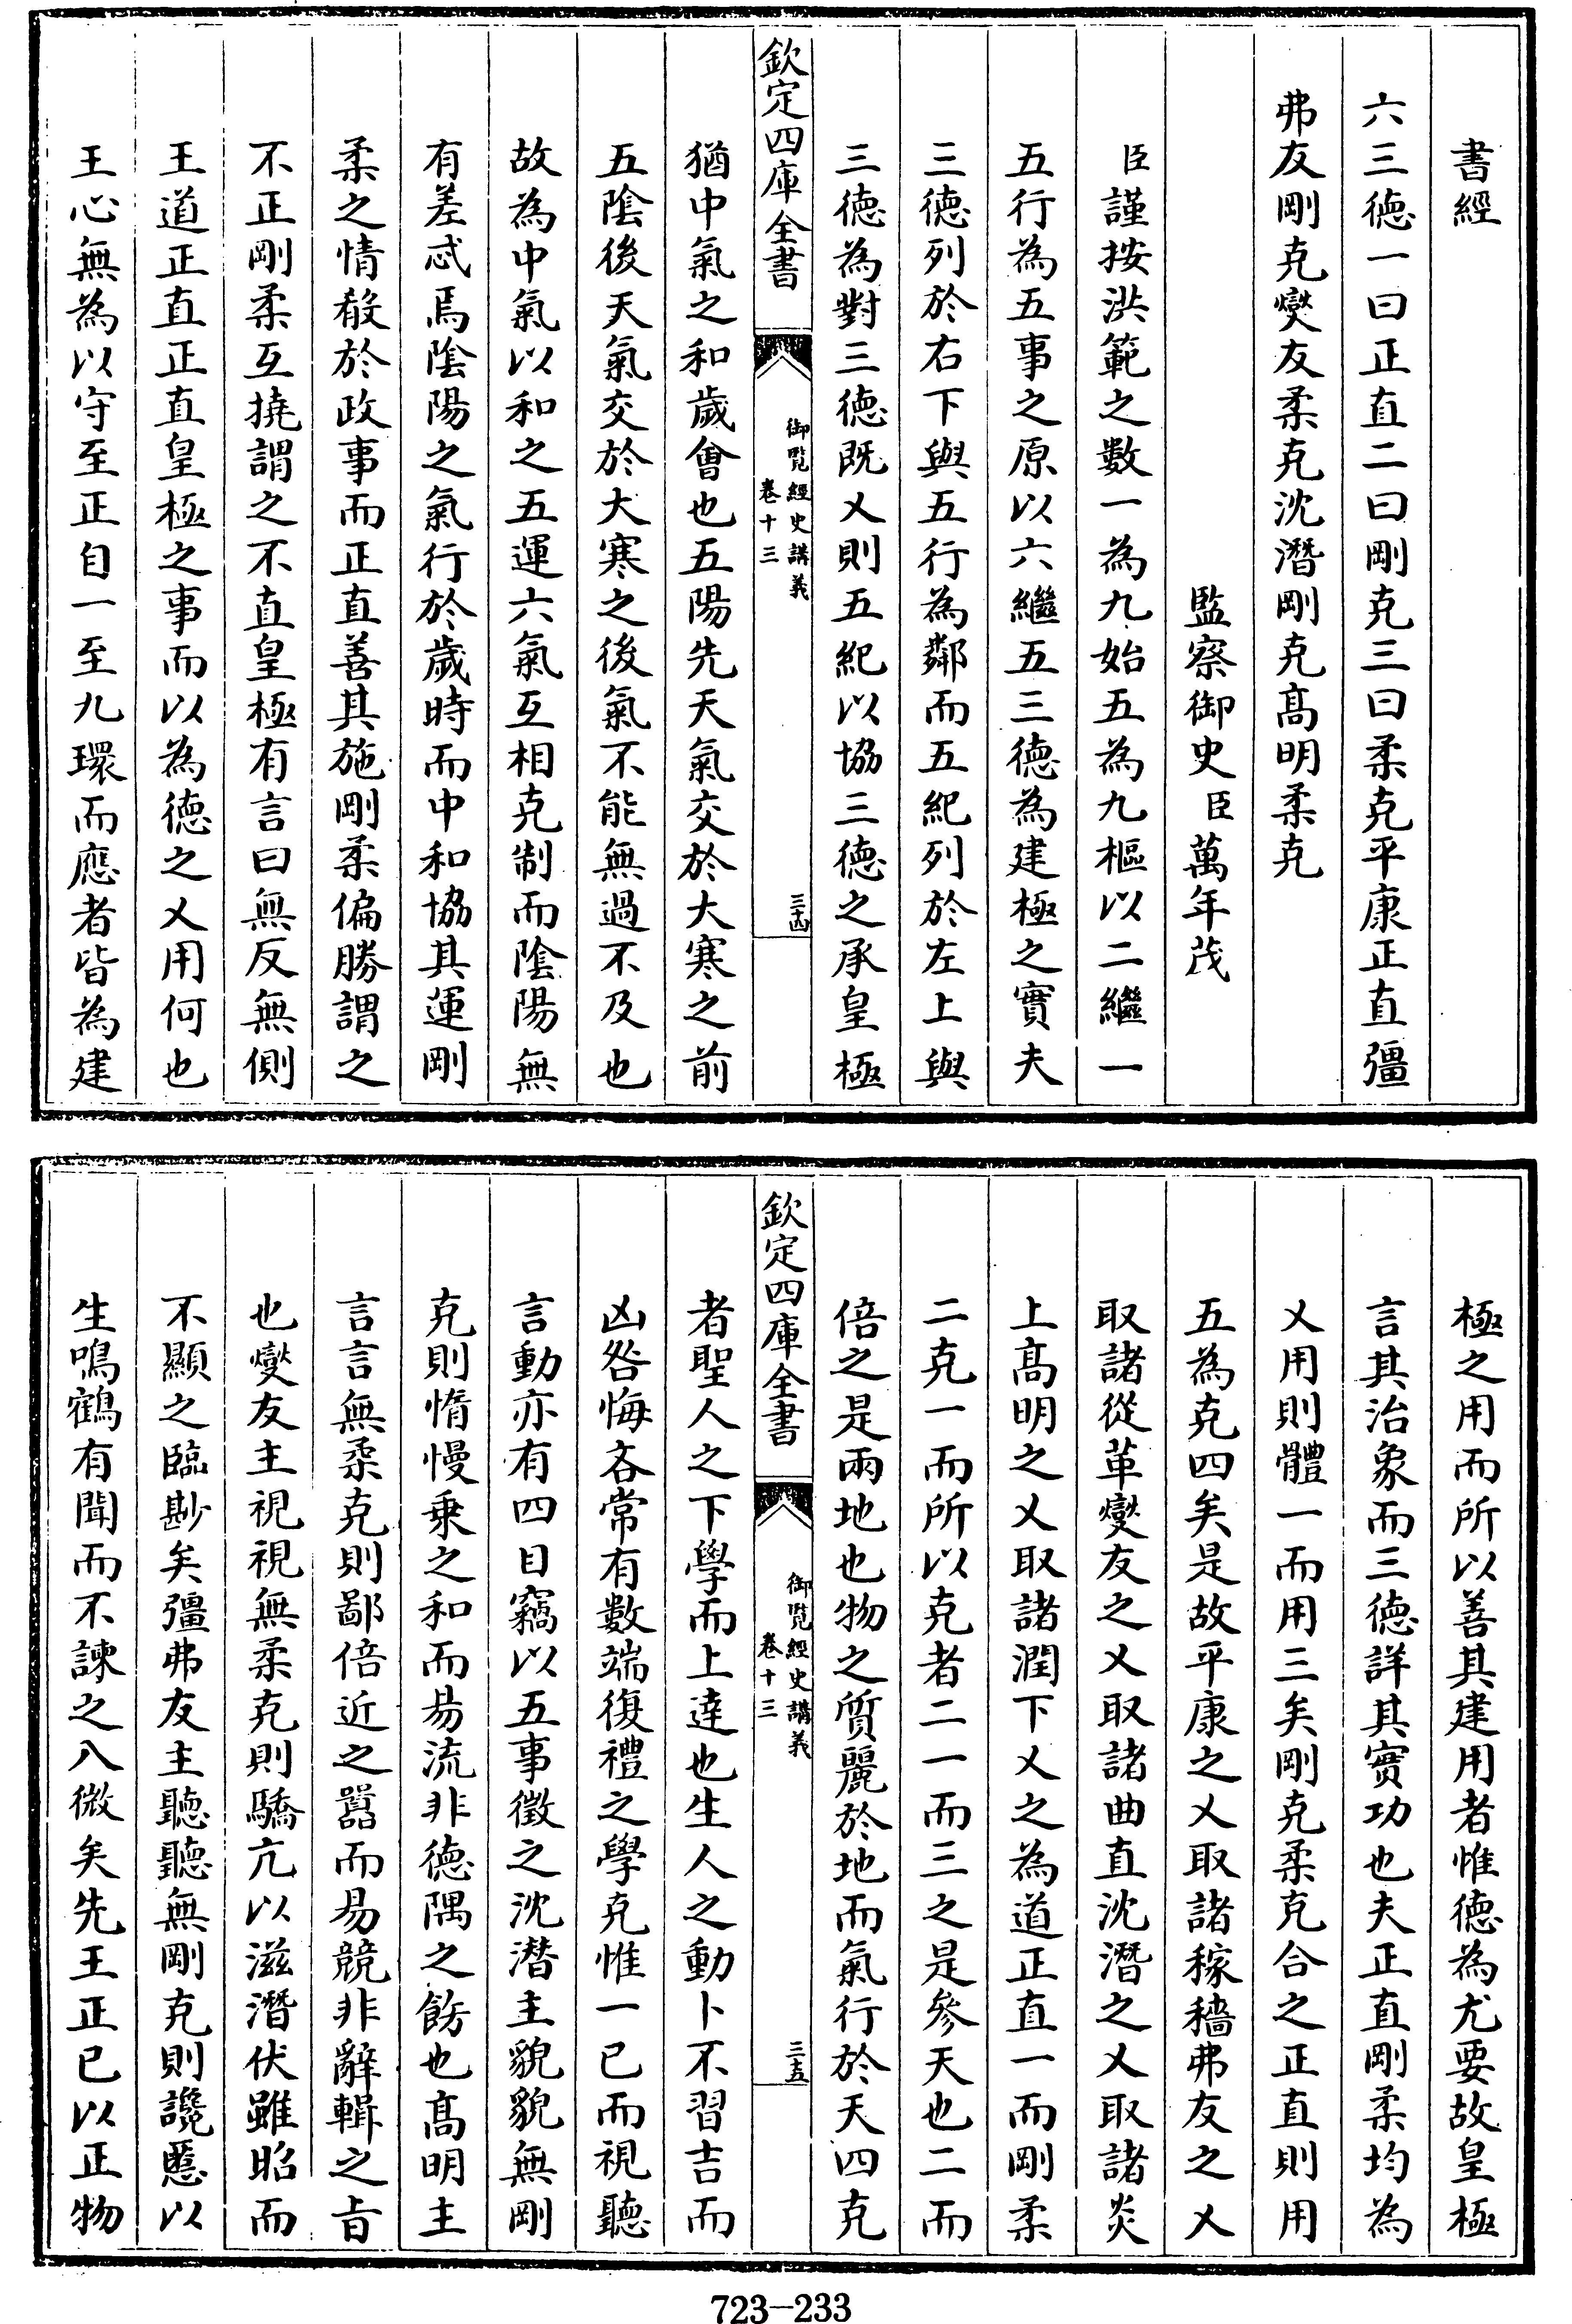 書經
六三徳一曰正直二曰剛克三曰柔克平康正直彊
弗友剛克燮友柔克沈潛剛克髙明柔克
監察御史臣萬年茂
臣謹按洪範之數一為九始五為九樞以二繼一
五行為五事之原以六繼五三德為建極之實夫
三德列於右下與五行為鄰而五紀列於左上與
三德為對三德既乂則五紀以協三德之承皇極
欽定四庫全書
御覽經史講義
卷十三
三十四
猶中氣之和歲會也五陽先天氣交於大寒之前
五陰後天氣交於大寒之後氣不能無過不及也
故為中氣以和之五運六氣互相克制而陰陽無
有差忒焉陰陽之氣行於歲時而中和協其運剛
柔之情殽於政事而正直善其施剛柔偏勝謂之
不正剛柔互撓謂之不直皇極有言曰無反無側
王道正直正直皇極之事而以為德之乂用何也
王心無為以守至正自一至九環而應者皆為建
極之用而所以善其建用者惟德為尤要故皇極
言其治象而三德詳其實功也夫正直剛柔均為
乂用則體一而用三矣剛克柔克合之正直則用
五為克四矣是故平康之乂取諸稼穡弗友之乂
取諸從革燮友之乂取諸曲直沈潛之乂取諸炎
上髙明之乂取諸潤下乂之為道正直一而剛柔
二克一而所以克者二一而三之是參天也二而
倍之是兩地也物之質麗於地而氣行於天四克
欽定四庫全書
御覽經史講義
卷十三
三十五
者聖人之下學而上達也生人之動卜不習吉而
凶咎悔吝常有數端復禮之學克惟一已而視聽
言動亦有四目竊以五事徵之沈潛主貌貌無剛
克則惰慢乗之和而易流非德隅之飭也髙明主
言言無柔克則鄙倍近之囂而易競非辭輯之旨
也燮友主視視無柔克則驕亢以滋潛伏雖昭而
不顯之臨尠矣彊弗友主聽聽無剛克則讒慝以
生鳴鶴有聞而不諫之入微矣先王正已以正物
723-233